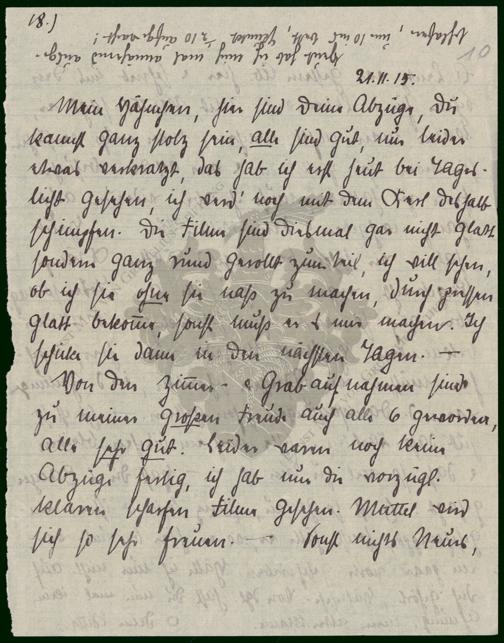 18.)
10
21.11.15.
Mein Hähnchen, hier sind deine Abzüge, Du
kannst ganz stolz sein, alle sind gut, nur leider
etwas verkratzt, das hab ich erst heut bei Tages-
licht gesehen ich werd' noch mit dem Kerl deshalb
schimpfen. Die Films sind diesmal gar nicht glatt
sondern ganz rund gerollt zum Teil, ich will sehen,
ob ich sie ohne sie naß zu machen, durch pressen
glatt bekomme, sonst muß er es nur machen. Ich
schicke sie dann in den nächsten Tagen. —
Von den Zimmer- & Grabaufnahmen sind
zu meiner großen Freude auch alle 6 geworden,
alle sehr gut. Leider waren noch keine
Abzüge fertig, ich hab nur die vorzügl.
klaren scharfen Films gesehen. Muttel wird
sich so sehr freuen. — Sonst nichts Neues,
heut hab ich mich mal
schlafen, um 10 ins Bett,